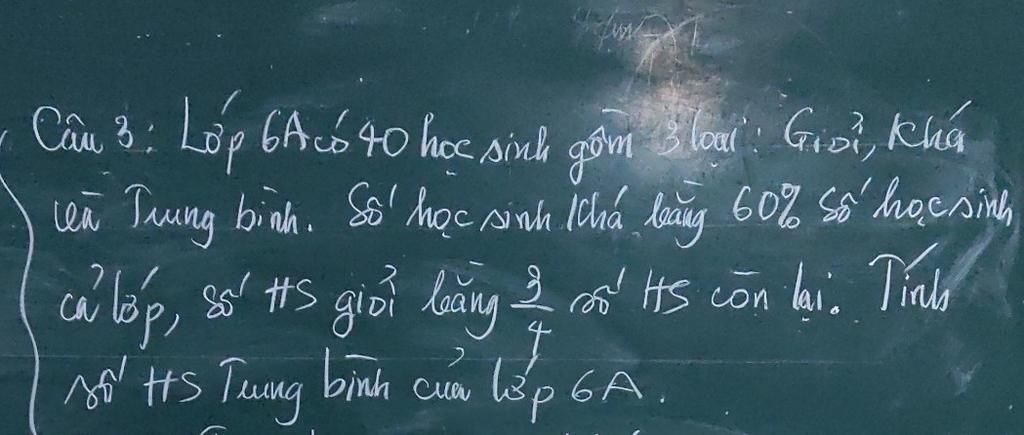 Câu 3: Lớp 6A có 40 học sinh gồm 3 loại: Giỏi, Khá
và Trung bình. Số học sinh Khá bằng 60% số học sinh
cả lớp, số HS giỏi bằng 3/4 số HS còn lại. Tính
số HS Trung bình của lớp 6A.